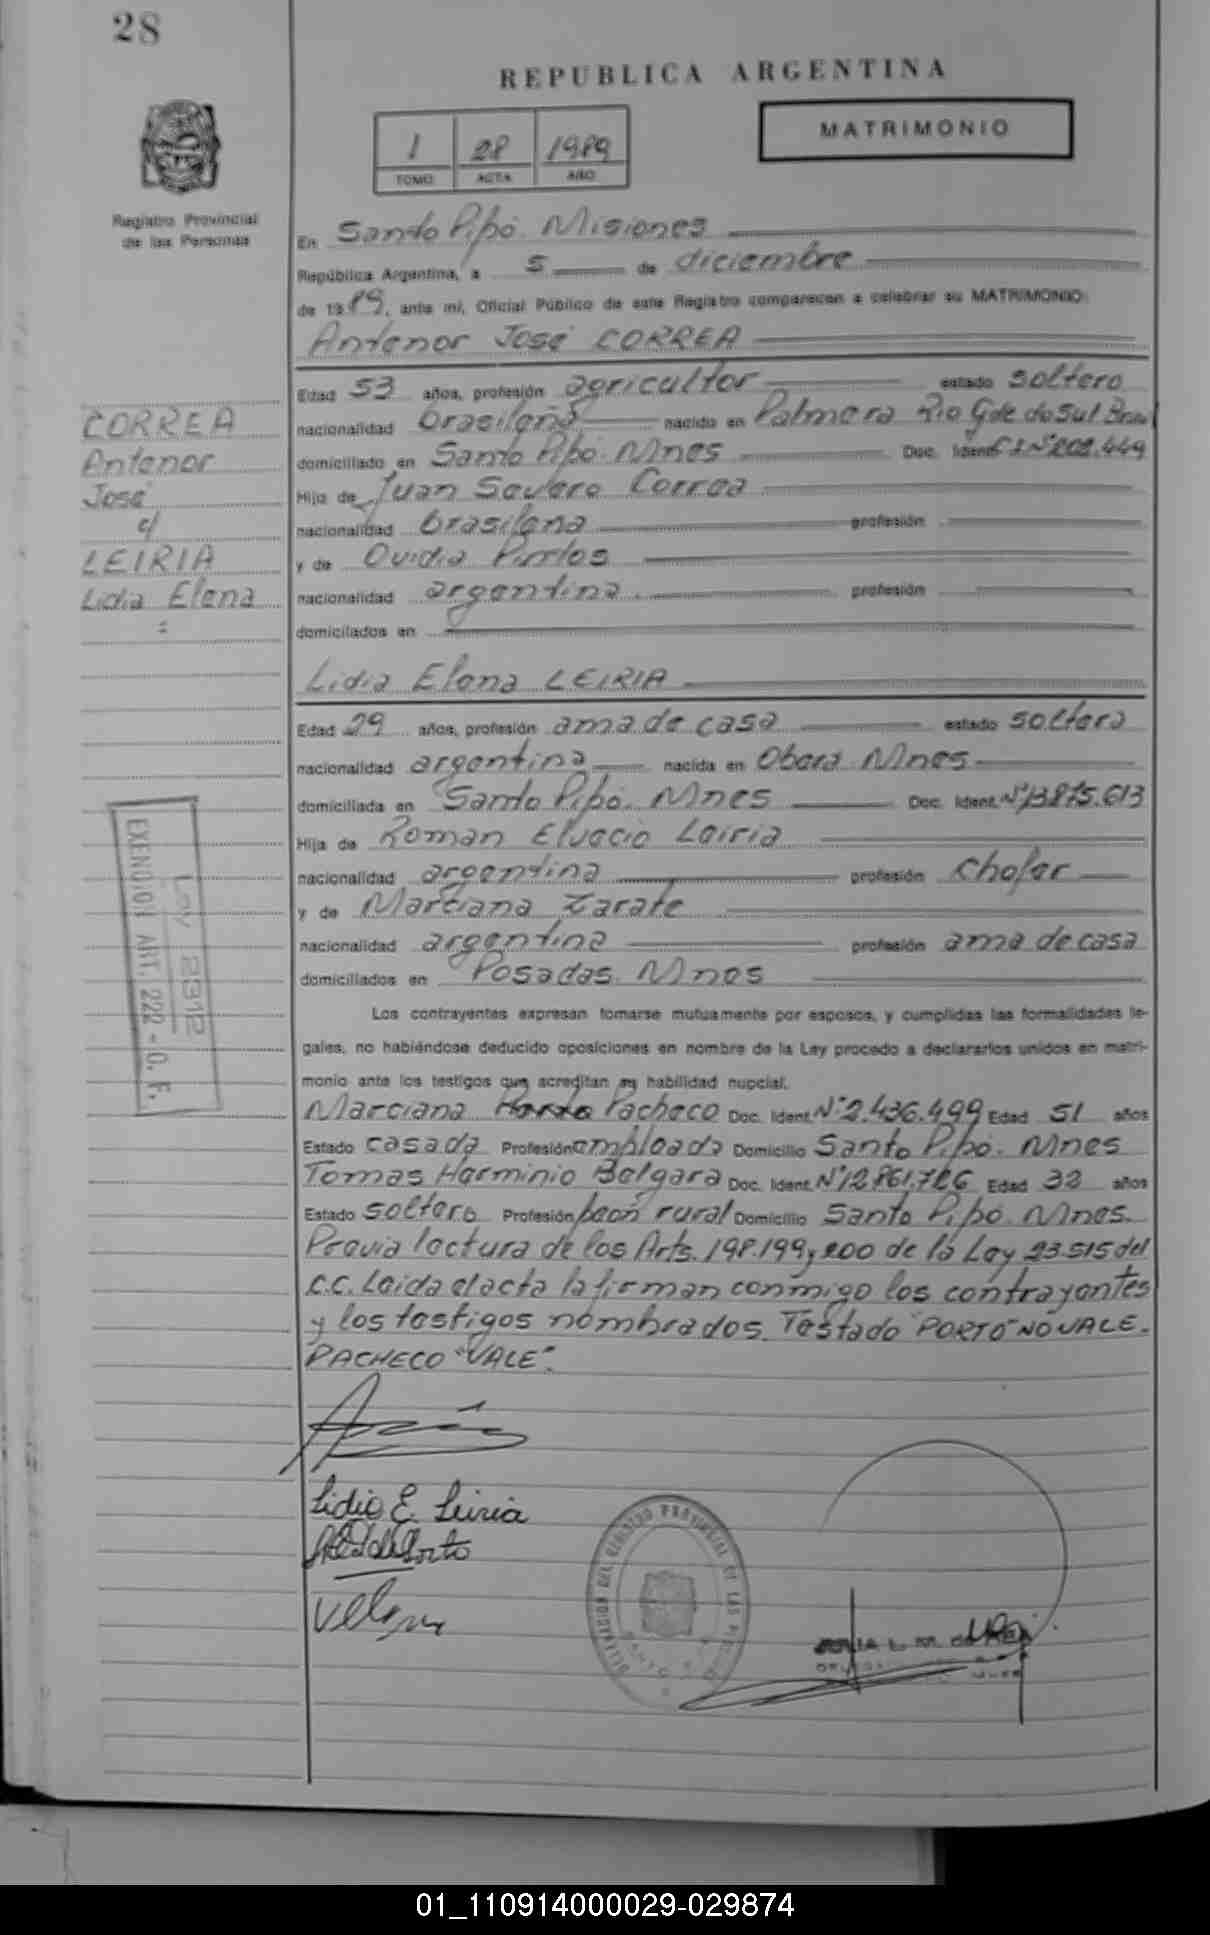 28
REPUBLICA ARGENTINA
1 28 1989
TOMO ACTA AÑO
MATRIMONIO
Registro Provincial
de las Personas
En Santo Pipó. Misiones
República Argentina, a 5 de diciembre
de 1989, ante mí, Oficial Público de este Registro comparecen a celebrar su MATRIMONIO:
Antenor José CORREA
Edad 53 años, profesión agricultor estado soltero
nacionalidad brasileña nacido en Palmera Rio Gde do Sul Brasil
domiciliado en Santo Pipó. Mnes Doc. Ident. C I Nº 202.449
Hijo de Juan Severo Correa
nacionalidad brasilena profesión
y de Ovidia
nacionalidad argentina profesión
domiciliados en
CORREA
Antenor
José
c/
LEIRIA
Lidia Elena
=
Lidia Elena LEIRIA
Edad 29 años, profesión ama de casa estado soltera
nacionalidad argentina nacida en Oberá Mnes
domiciliada en Santo Pipó. Mnes Doc. Ident. Nº 13.875.613
Hija de Roman Elvacio Leiria
nacionalidad argentina profesión chofer
y de Marciana Zarate
nacionalidad argentina profesión ama de casa
domiciliados en Posadas. Mnes
Ley 2912
EXENCION ART. 222 - C. F.
Los contrayentes expresan tomarse mutuamente por esposos, y cumplidas las formalidades le-
gales, no habiéndose deducido oposiciones en nombre de la Ley procedo a declararlos unidos en matri-
monio ante los testigos que acreditan su habilidad nupcial.
Marciana Pacheco Doc. Ident. Nº 2.436.499 Edad 51 años
Estado casada Profesión empleada Domicilio Santo Pipó. Mnes
Tomas Herminio Belgara Doc. Ident. Nº 12.861.726 Edad 32 años
Estado soltero Profesión peón rural Domicilio Santo Pipó. Mnes.
Previa lectura de los Arts. 198.199 y 200 de la Ley 23.515 del
C.C. Leida el acta la firman conmigo los contrayentes
y los testigos nombrados. Testado "PORTO" NO VALE.
PACHECO "VALE".
Lidia E. Leiria
DELEGACION DEL REGISTRO PROVINCIAL DE LAS PERSONAS
SANTO
01_110914000029-029874